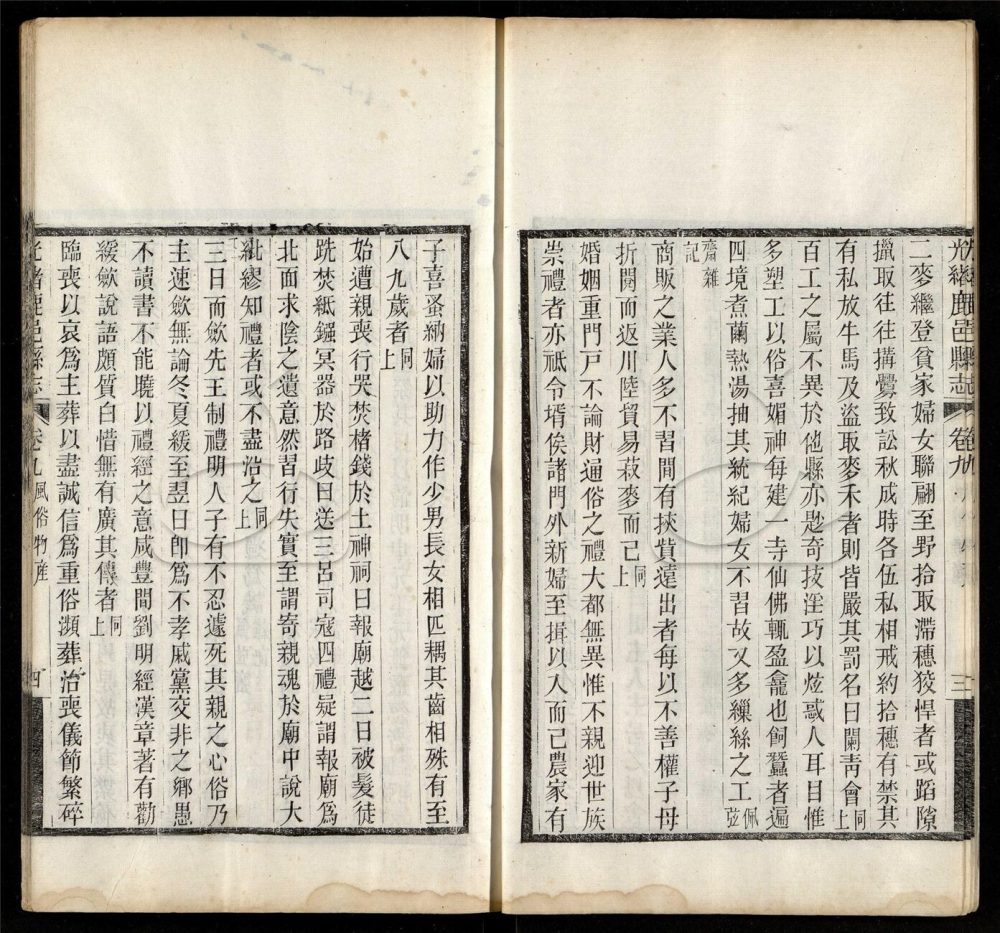 光緒鹿邑縣志 卷九 三
二麥繼登貧家婦女聯翩至野拾取滯穗狡悍者或蹈隙
攘取往往搆釁致訟秋成時各伍私相戒約拾穗有禁其
有私放牛馬及盜取麥禾者則皆嚴其罰名曰闌靑會同上
百工之屬不異於他縣亦尟奇技淫巧以炫惑人耳目惟
多塑工以俗喜媚神每建一寺仙佛輒盈龕也飼蠶者遍
四境煮繭熱湯抽其統紀婦女不習故又多繅絲之工佩弦
齋雜記
商販之業人多不習間有挾貲遠出者每以不善權子母
折閱而返川陸貿易菽麥而已同上
婚姻重門戸不論財通俗之禮大都無異惟不親迎世族
崇禮者亦祇令壻俟諸門外新婦至揖以入而已農家有
子喜蚤納婦以助力作少男長女相匹耦其齒相殊有至
八九歲者同上
始遭親喪行哭焚楮錢於土神祠曰報廟越二日被髮徒
跣焚紙鏹冥器於路歧曰送三呂司寇四禮疑謂報廟爲
北面求陰之遺意然習行失實至謂寄親魂於廟中說大
紕繆知禮者或不盡沿之同上
三日而斂先王制禮明人子有不忍遽死其親之心俗乃
主速斂無論冬夏緩至翌日卽爲不孝戚黨交非之鄉愚
不讀書不能曉以禮經之意咸豐間劉明經漢章著有勸
緩斂說語頗質白惜無有廣其傳者同上
臨喪以哀爲主葬以盡誠信爲重俗瀕葬治喪儀節繁碎
光緒鹿邑縣志 卷九 風俗物產 四